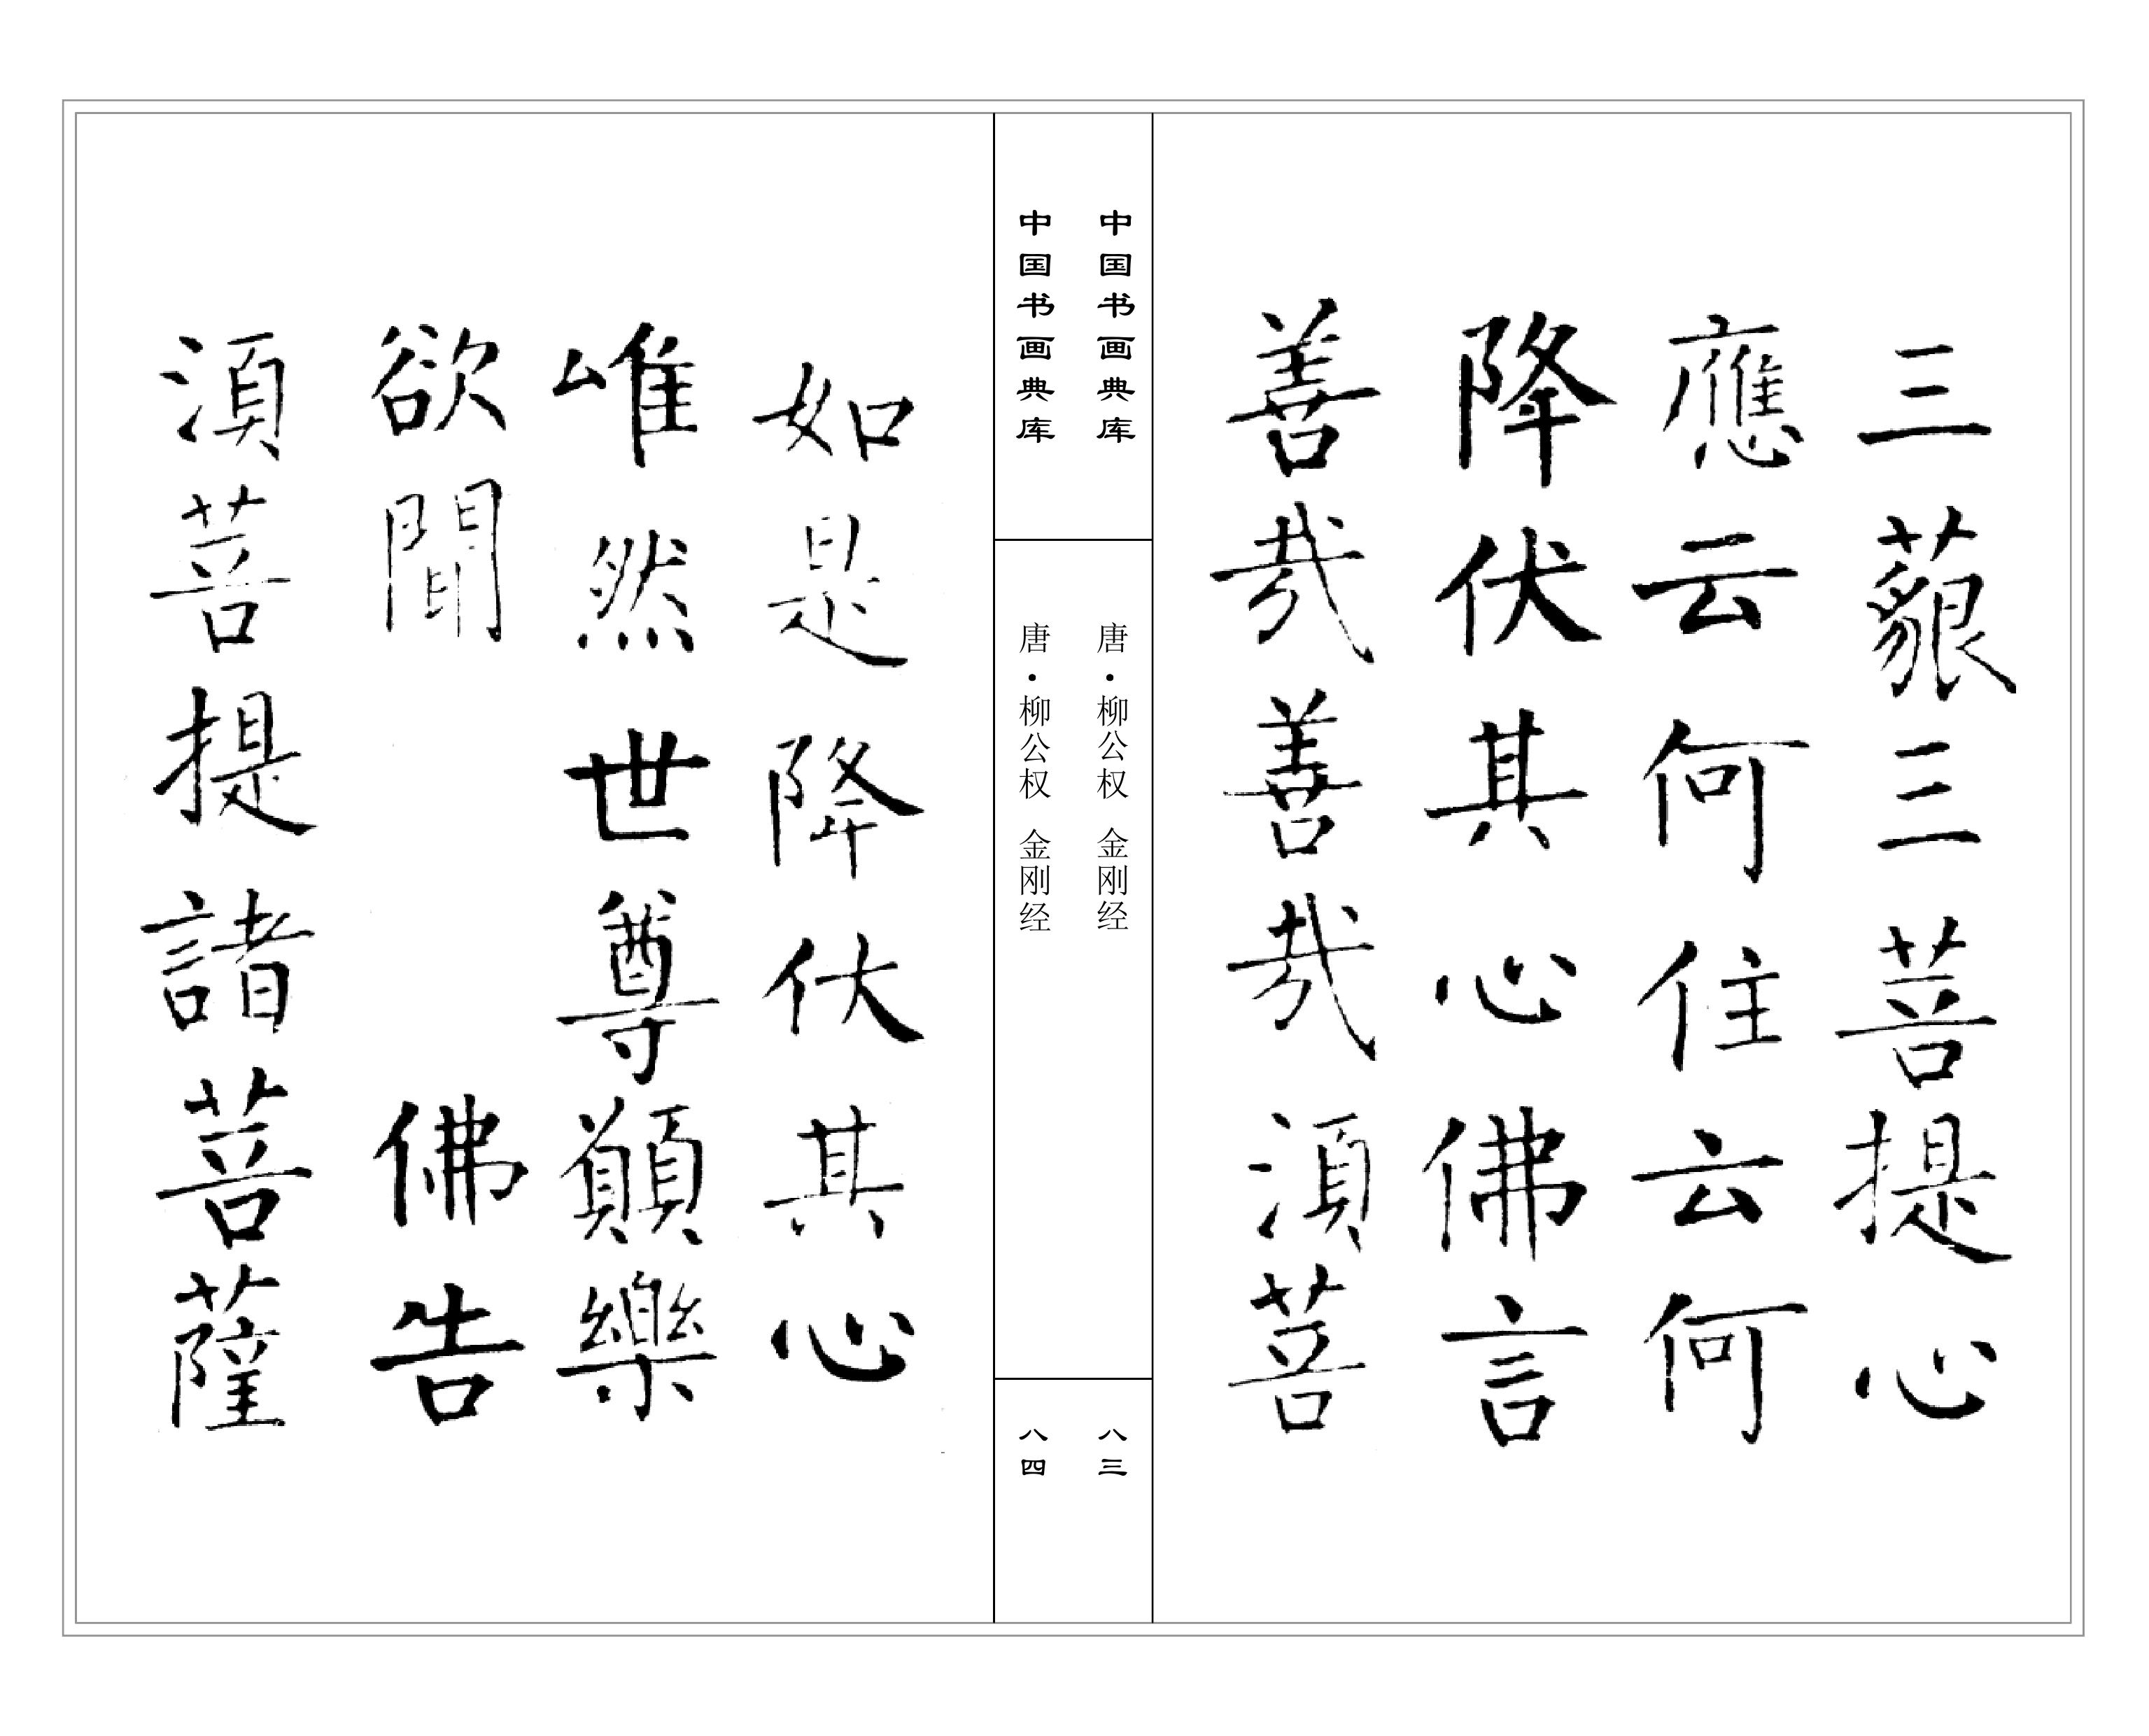 三藐三菩提心
應云何住云何
降伏其心佛言
善哉善哉湏菩
中国书画典库
唐·柳公权 金刚经
八三
中国书画典库
唐·柳公权 金刚经
八四
如是降伏其心
唯然世尊願樂
欲聞 佛告
湏菩提諸菩薩